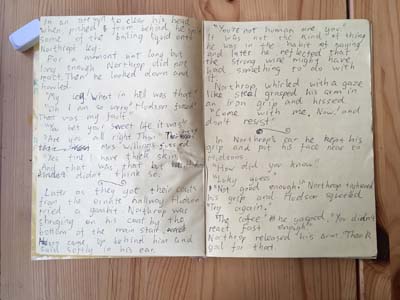 In an attempt to clear his head
when pushed from behind he spilt
some of the boiling liquid onto
Northrop leg.
For a moment not long but
long enough Northrop did not
react. Then he looked down and
howled.
"My leg! What in hell was that"
"Oh I am so sorry" Hudson faked
That was my fault"
"You bet your sweet life it was"
"Are you all right Tho"
Mrs Wilmot fussed
"Yes fine, have thick skin"
And that was that but
didn't think so.
Later as they got their coats
from the ornate hallway Hudson
tried a gambit. Northrop was
shrugging on his coat by the
bottom of the main stair
came up behind him and
said softly in his ear.
"You're not human are you"
It was not the kind of thing
he was in the habit of saying
and later he reflected that
the strong wine might have
had something to do with
it.
Northrop whirled with a gaze
like steel grasped his arm in
an iron grip and hissed
"Come with me, Now! and
don't resist"
In Northrop's car he kept his
grip and put his face near to
Hudsons
"How did you know"
"Lucky guess"
"Not good enough" Northrop tightened
his grip and Hudson squealed
"Try again."
"The coffee" He gasped, "You didn't
react fast enough"
Northrop released his arm. Thank
god for that.